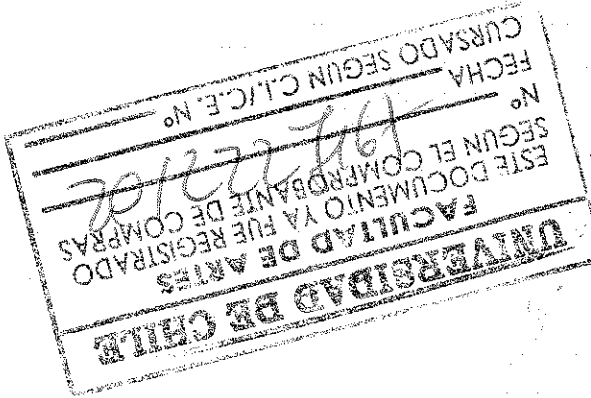 UNIVERSIDAD DE CHILE
FACULTAD DE ARTES
ESTE DOCUMENTO YA FUE REGISTRADO
SEGUN EL COMPROBANTE DE COMPRAS
Nº
FECHA
CURSADO SEGUN C.I./C.E. Nº